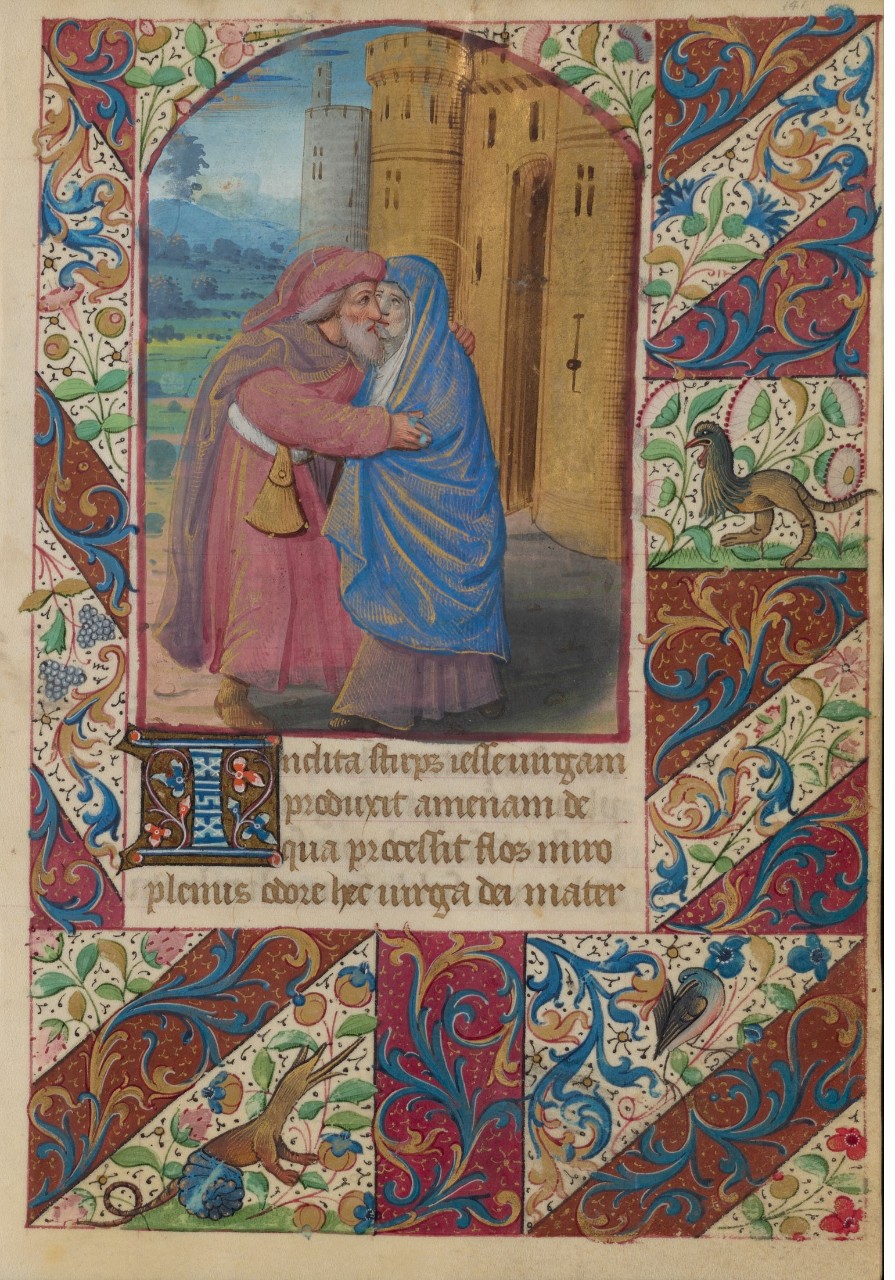 Inclita stirps iesse uirgam
produxit amenam de
qua processit flos miro
plenus odore hec uirga dei mater